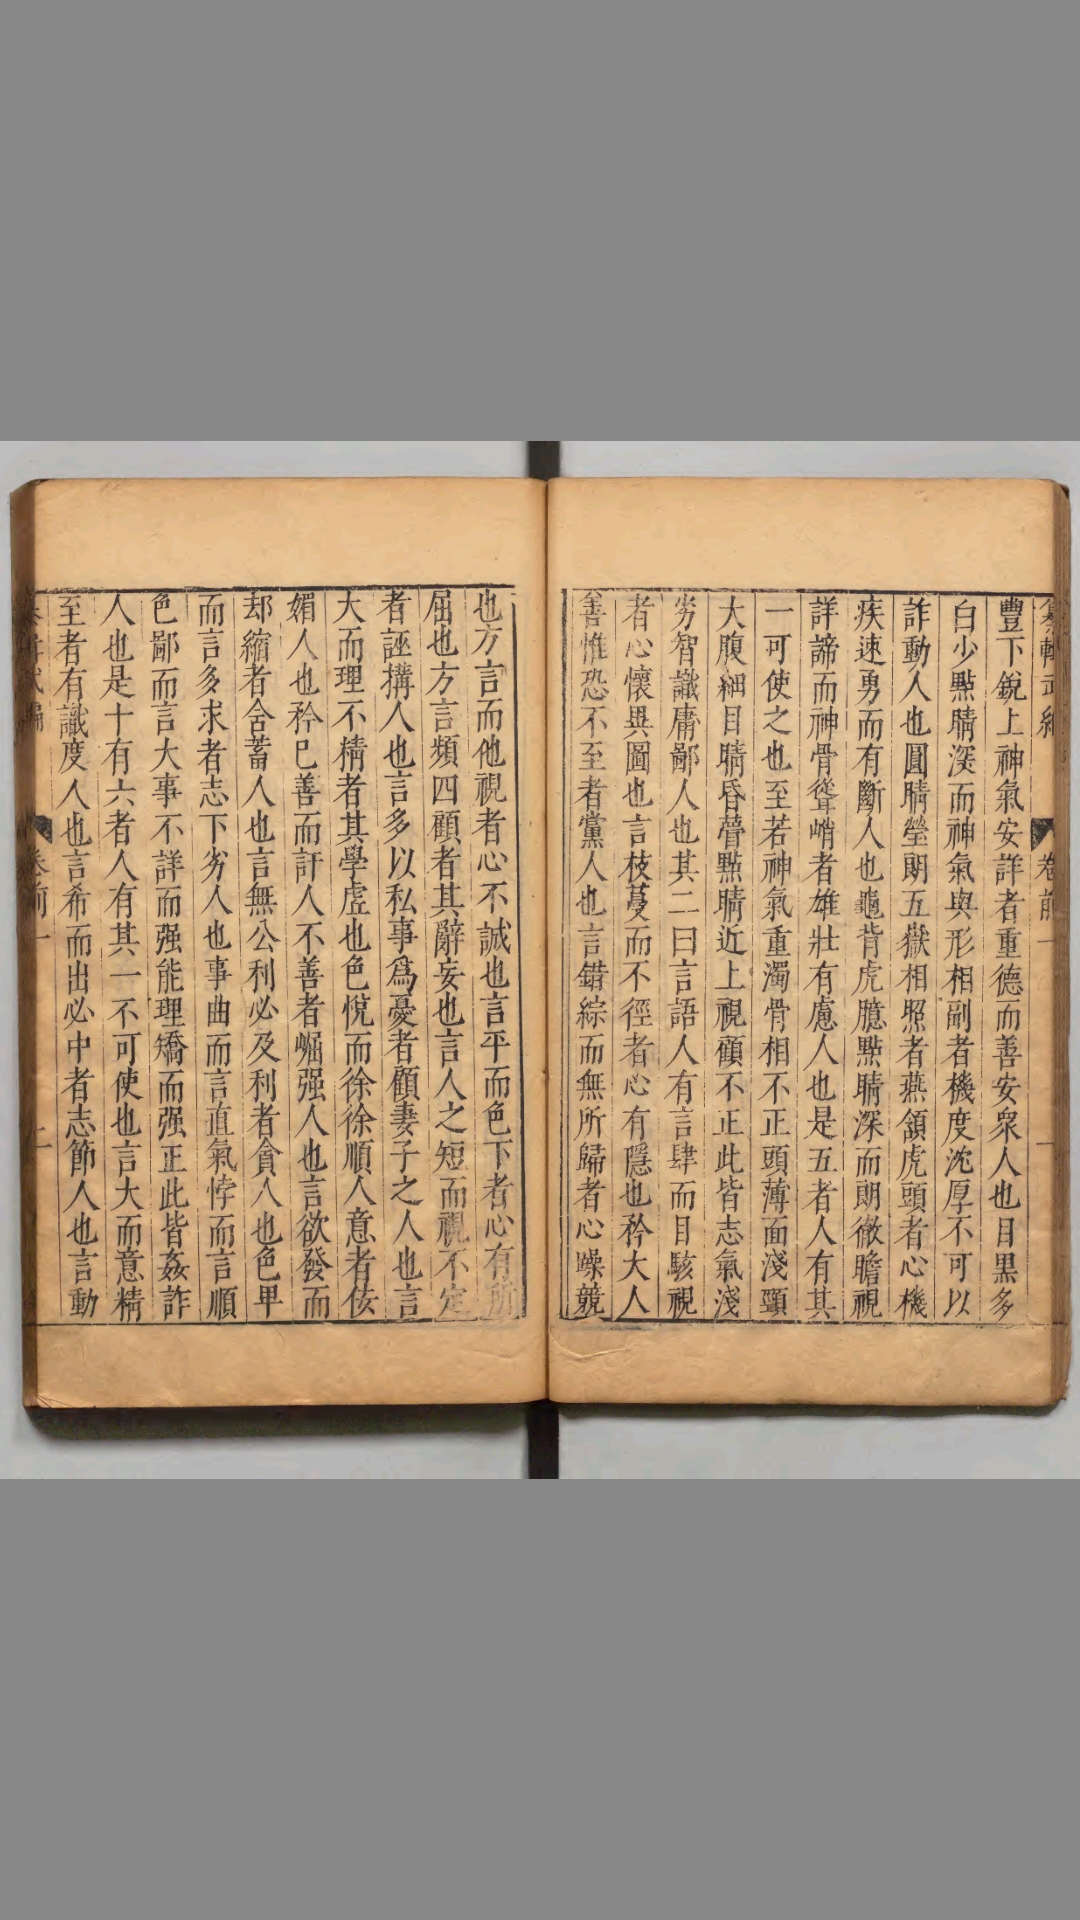 纂輯武編 卷前一 一
豐下銳上神氣安詳者重德而善安衆人也目黒多
白少㸃睛深而神氣與形相副者機度沈厚不可以
詐動人也圓睛瑩朗五嶽相照者燕頷虎頭者心機
疾速勇而有斷人也龜背虎臆㸃睛深而朗徹瞻視
詳諦而神骨聳峭者雄壯有慮人也是五者人有其
一可使之也至若神氣重濁骨相不正頭薄面淺頸
大腹細目睛昏瞢㸃睛近上視顧不正此皆志氣淺
劣智識庸鄙人也其二曰言語人有言肆而目駭視
者心懷異圖也言枝蔓而不徑者心有隱也矜大人
善惟恐不至者黨人也言錯綜而無所歸者心躁競
也方言而他視者心不誠也言平而色下者心有所
屈也方言頻四顧者其辭妄也言人之短而視不定
者誣搆人也言多以私事爲憂者顧妻子之人也言
大而理不精者其學虛也色悅而徐徐順人意者佞
媚人也矜巳善而訐人不善者崛强人也言欲發而
却縮者含蓄人也言無公利必及利者貪人也色甲
而言多求者志下劣人也事曲而言直氣悖而言順
色鄙而言大事不詳而强能理矯而强正此皆姦詐
人也是十有六者人有其一不可使也言大而意精
至者有識度人也言希而出必中者志節人也言動
武編 卷前一 二